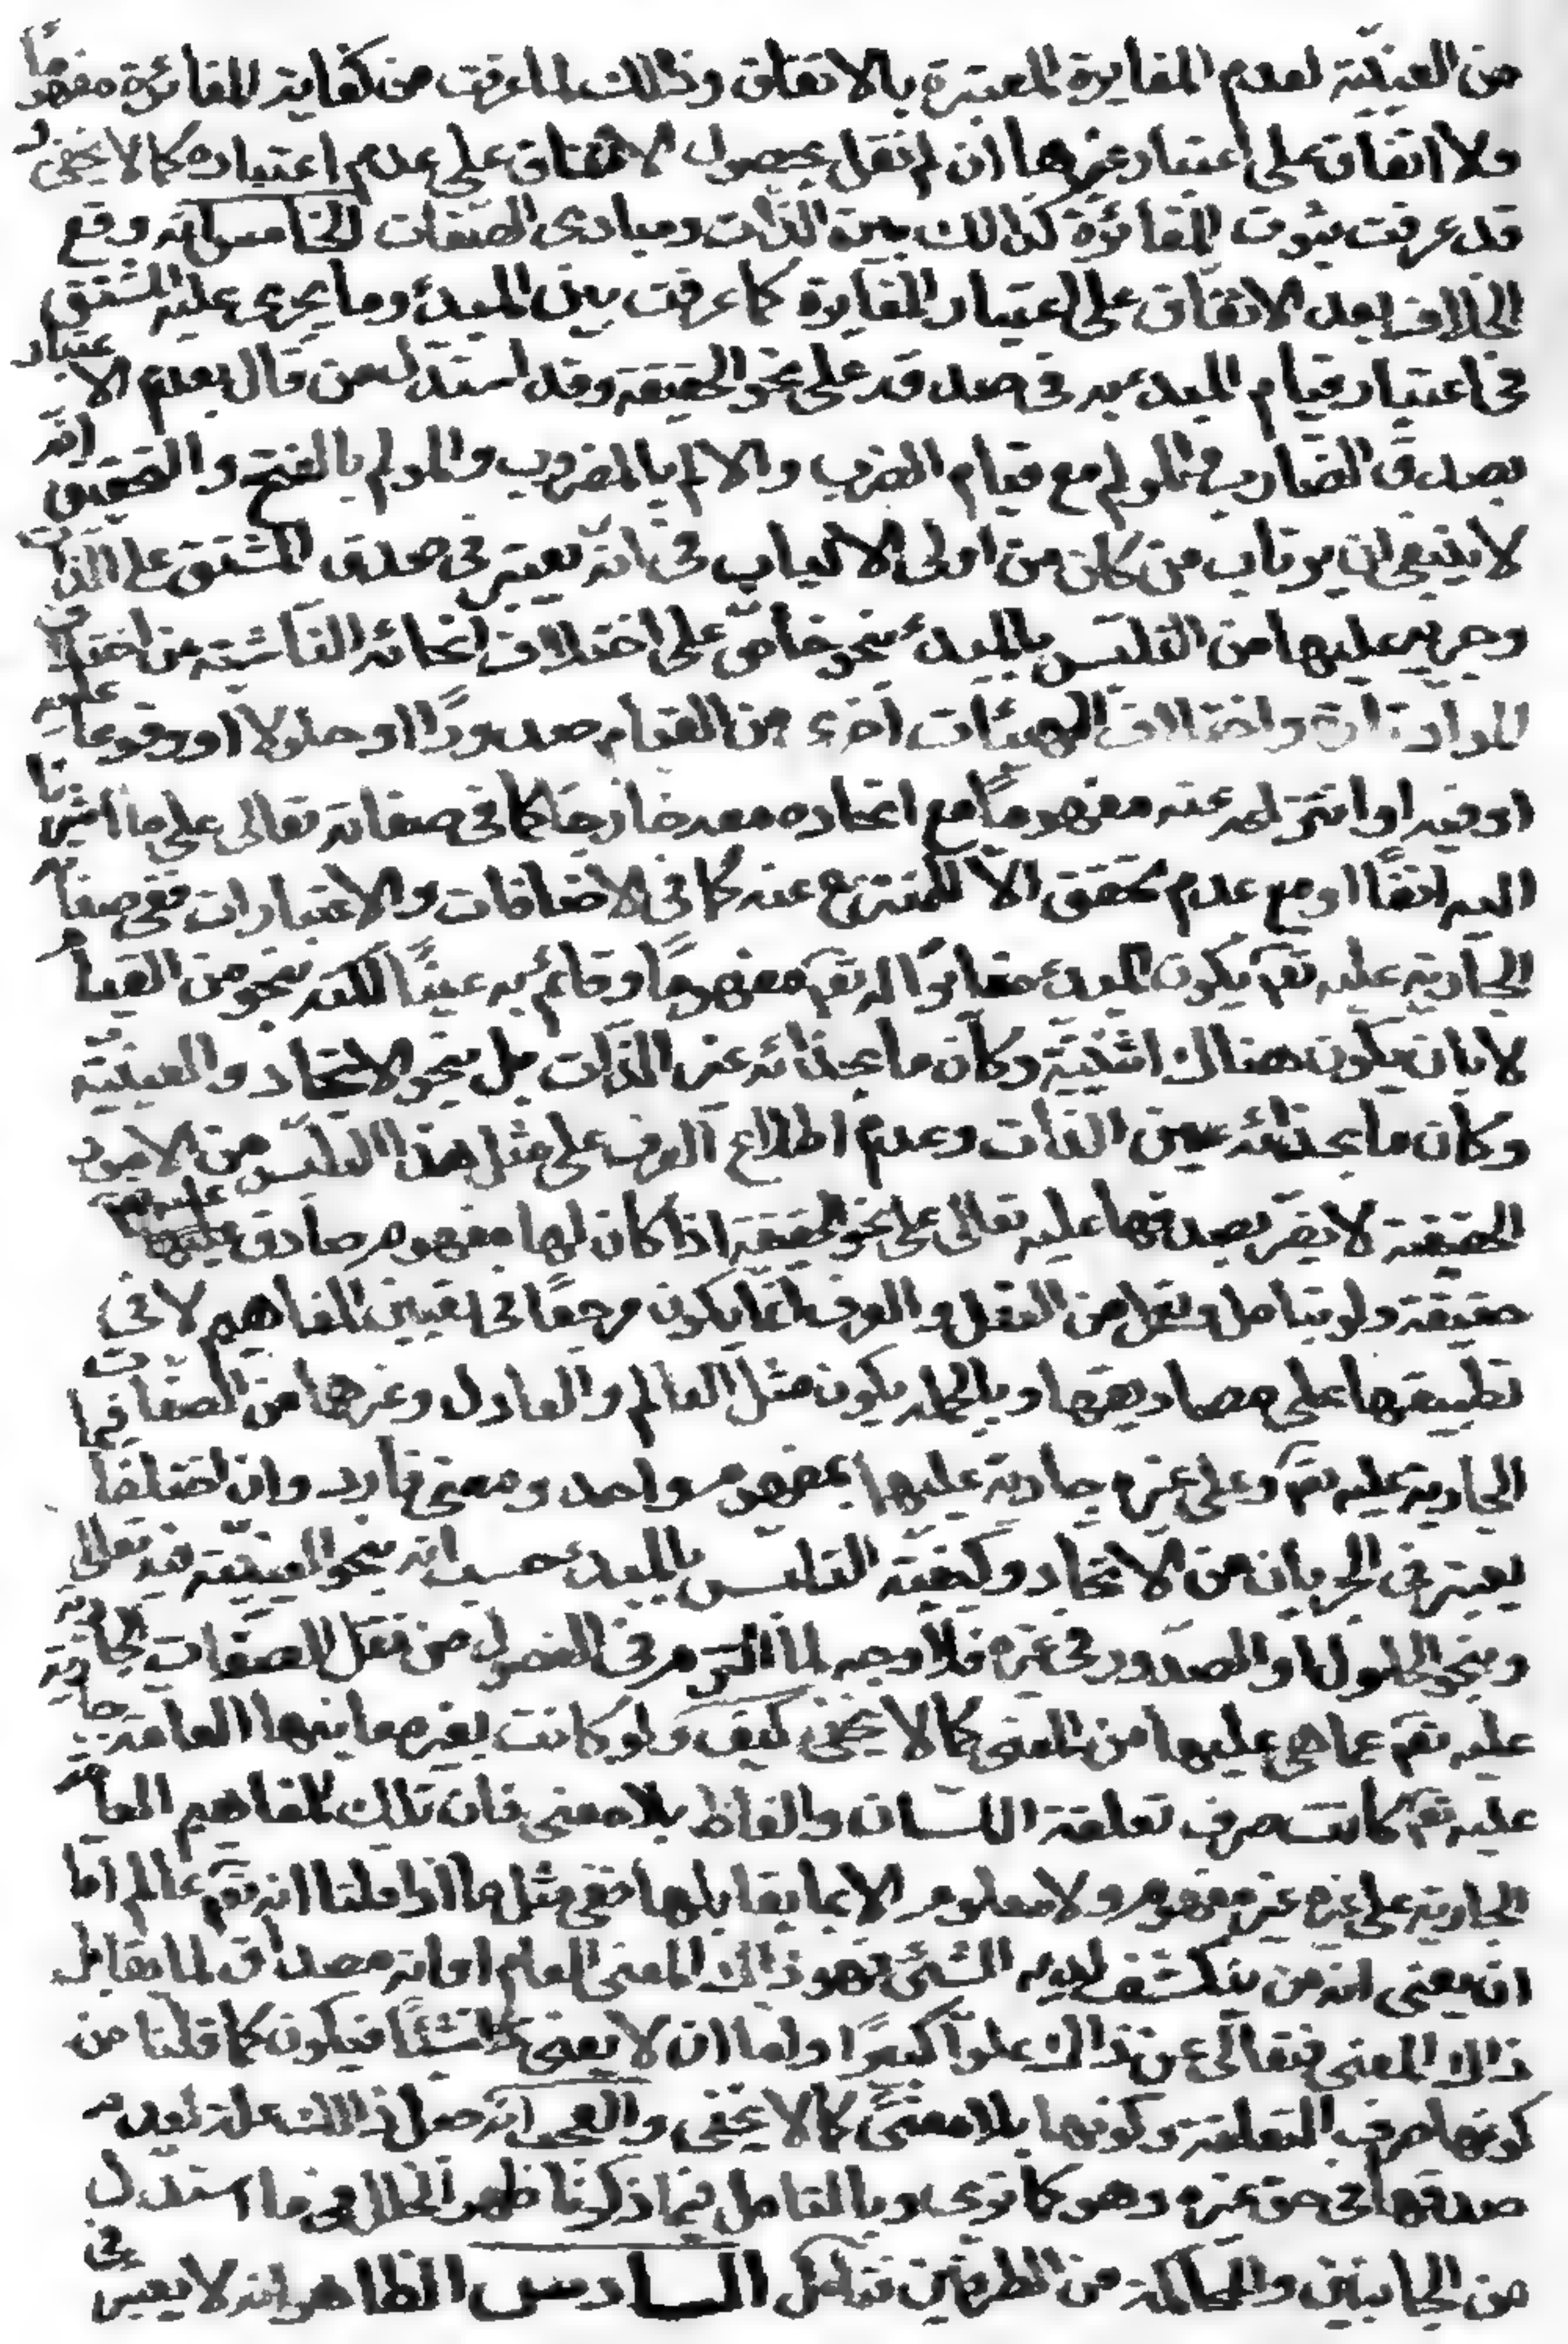 من العينيّة لعدم المغايرة المعتبرة بالاتفاق وذالك لما عرفت من كفاية المغائرة مفهومًا
ولا اتفاق على اعتبار غيرها ان لم نقل بحصول الاتفاق على عدم اعتباره كما لا يخفى و
قد عرفت ثبوت المغائرة كذالك بين الذات ومبادى الصّفات الخامس انه وقع
الخلاف بعد الاتفاق على اعتبار المغايرة كما عرفت بين المبدء وما يجرى عليه المشتق
فى اعتبار قيام المبدء به فى صدقه على نحو الحقيقة وقد استدل من قال بعدم الاعتبار
بصدق الضارب والمولم مع قيام الضرب والالم بالمضروب والمولم بالفتح والتحقيق انه
لا ينبغى ان يرتاب من كان من اولى الالباب فى انه يعتبر فى صدق المشتق على الذات
وجريه عليها من التلبّس بالمبدء بنحو خاصّ على اختلاف انحائه الناشئة من اختلاف
المواد تارة واختلاف الهيئات اخرى من القيام صدورًا او حلولا او وقوعا عليه
او فيه او انتزاعه عنه مفهومًا مع اتحاده معه خارجا كما فى صفاته تعالى على ما اشرنا
اليه انفًا او مع عدم تحقق الا للمنتزع عنه كما فى الاضافات والاعتبارات ففى صفاته
الجارية عليه تعم يكون المبدء مغايرًا له تعم مفهومًا وقائم به عينًا لكنه بنحو من القيام
لا بان يكون هناك اثنينيّة وكان ما بحذائه غير الذات بل بنحو الاتحاد والعينيّة
وكان ما بحذائه عين الذات وعدم اطلاع العرف على مثل هذا التلبّس من الامور
الحقيقية لا يضرّ بصدقها عليه تعالى على نحو الحقيقة اذا كان لها مفهوم صادق عليه تعم
حقيقة ولو بتامل وتعمل من العقل والعرف انما يكون مرجعًا فى تعيين المفاهيم لا فى
تطبيقها على مصاديقها وبالجملة يكون مثل العالم والعادل وغيرهما من الصفات
الجارية عليه تعم وعلى غيره جارية عليها بمفهوم واحد ومعنى فارد وان اختلفا فيما
يعتبر فى الجريان من الاتحاد وكيفية التلبس بالمبدء حسب انه بنحو العينيّة فيه تعالى
وبنحو الحلول او الصدور فى غيره فلا وجه لما التزم فى الفصول من نقل الصّفات الجارية
عليه تعم عما هى عليها من المعنى كما لا يخفى كيف ولو كانت بغير معانيها العامة جارية
عليه تعم كانت صرف تعلقة اللسان والفاظ بلا معنى فان تلك المفاهيم العامة
الجارية على غيره غير مفهوم ولا معلوم الا بما يقابلها ففى مثل ما اذا قلنا انه تعم عالم اما
ان يعنى انه من ينكشف لديه الشئ فهو ذاك المعنى العام او انه مصداق لما يقابل
ذاك المعنى فتعالى عن ذاك علوا كبيرًا واما ان لا يعنى شيئًا فيكون كما قلنا من
كونها صرف التعلقة وكونها بلا معنى كما لا يخفى والعجب انه جعل ذالك علة لعدم
صدقها فى حق غيره وهو كما ترى وبالتامل فيما ذكرنا ظهر الخلل فى ما استدل
من الجانبين والمحاكمة من الطرفين فتامل السادس الظاهر انه لا يعتبر فى